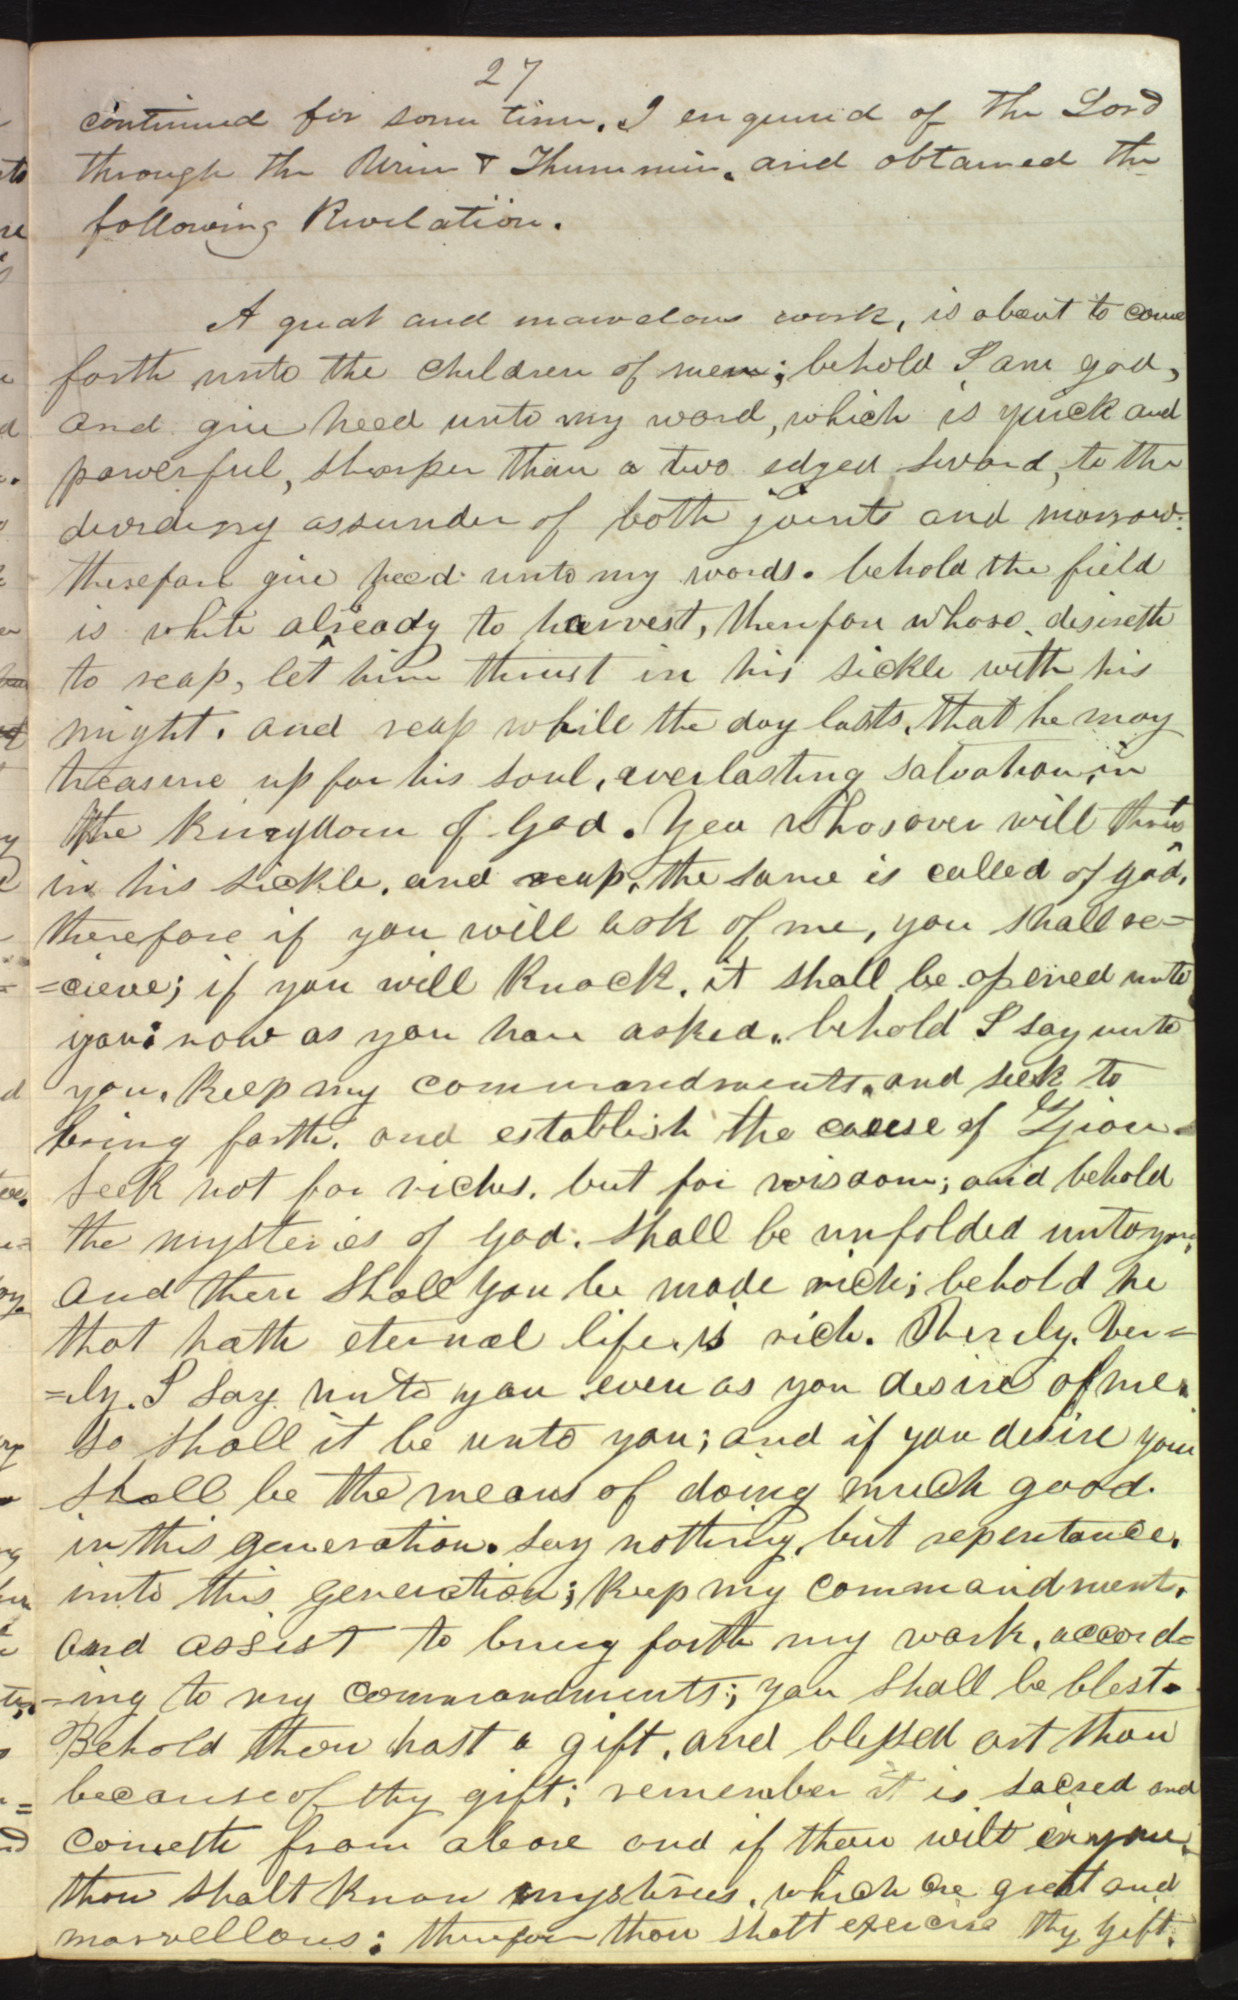 27
continued for some time. I enquired of the Lord
through the Urim & Thummim, and obtained the
following Revelation.
A great and marvelous work, is about to come
forth unto the children of men; behold I am god,
and give heed unto my word, which is quick and
powerful, sharper than a two edged sword, to the
dividing assunder of both joints and marrow:
therefore give heed unto my words. behold the field
is white already to harvest, therefore whoso desireth
to reap, let him thrust in his sickle with his
might. and reap while the day lasts, that he may
treasure up for his soul, everlasting salvation, in
the Kingdom of God. Yea whosoever will thrust
in his sickle, and reap, the same is called of god,
therefore if you will ask of me, you shall re=
=cieve; if you will knock, it shall be opened unto
you: now as you have asked, behold I say unto
you, keep my commandments, and seek to
bring forth, and establish the cause of Zion.
Seek not for riches, but for wisdom; and behold
the mysteries of god, shall be unfolded unto you,
and then shall you be made rich; behold he
that hath eternal life, is rich. Verely, Ver=
=ly, I say unto you even as you desire of me,
so shall it be unto you; and if you desire you
shall be the means of doing much good.
in this generation. Say nothing, but repentance,
unto this generation; keep my commandment,
and assist to bring forth my work, accord=
=ing to my commandments; you shall be blest.
Behold thou hast a gift, and blessed art thou
because of thy gift; remember it is sacred and
cometh from above and if thou wilt enquire,
thou shalt know mysteries, which are great and
marvellous; therefore thou shalt exercise thy gift,